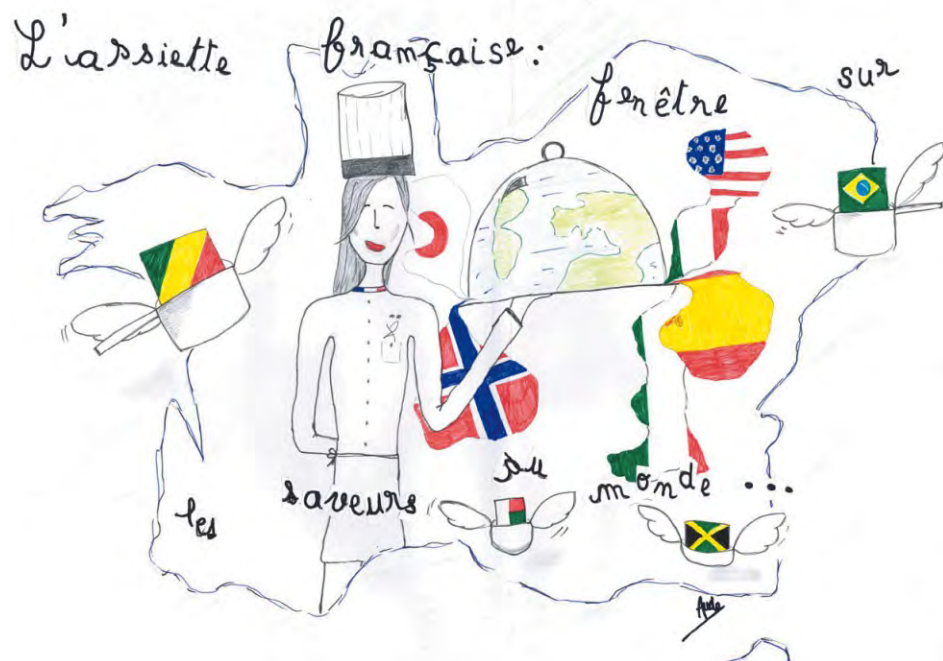 L'assiette française :
fenêtre sur
les saveurs du monde ...
Aude